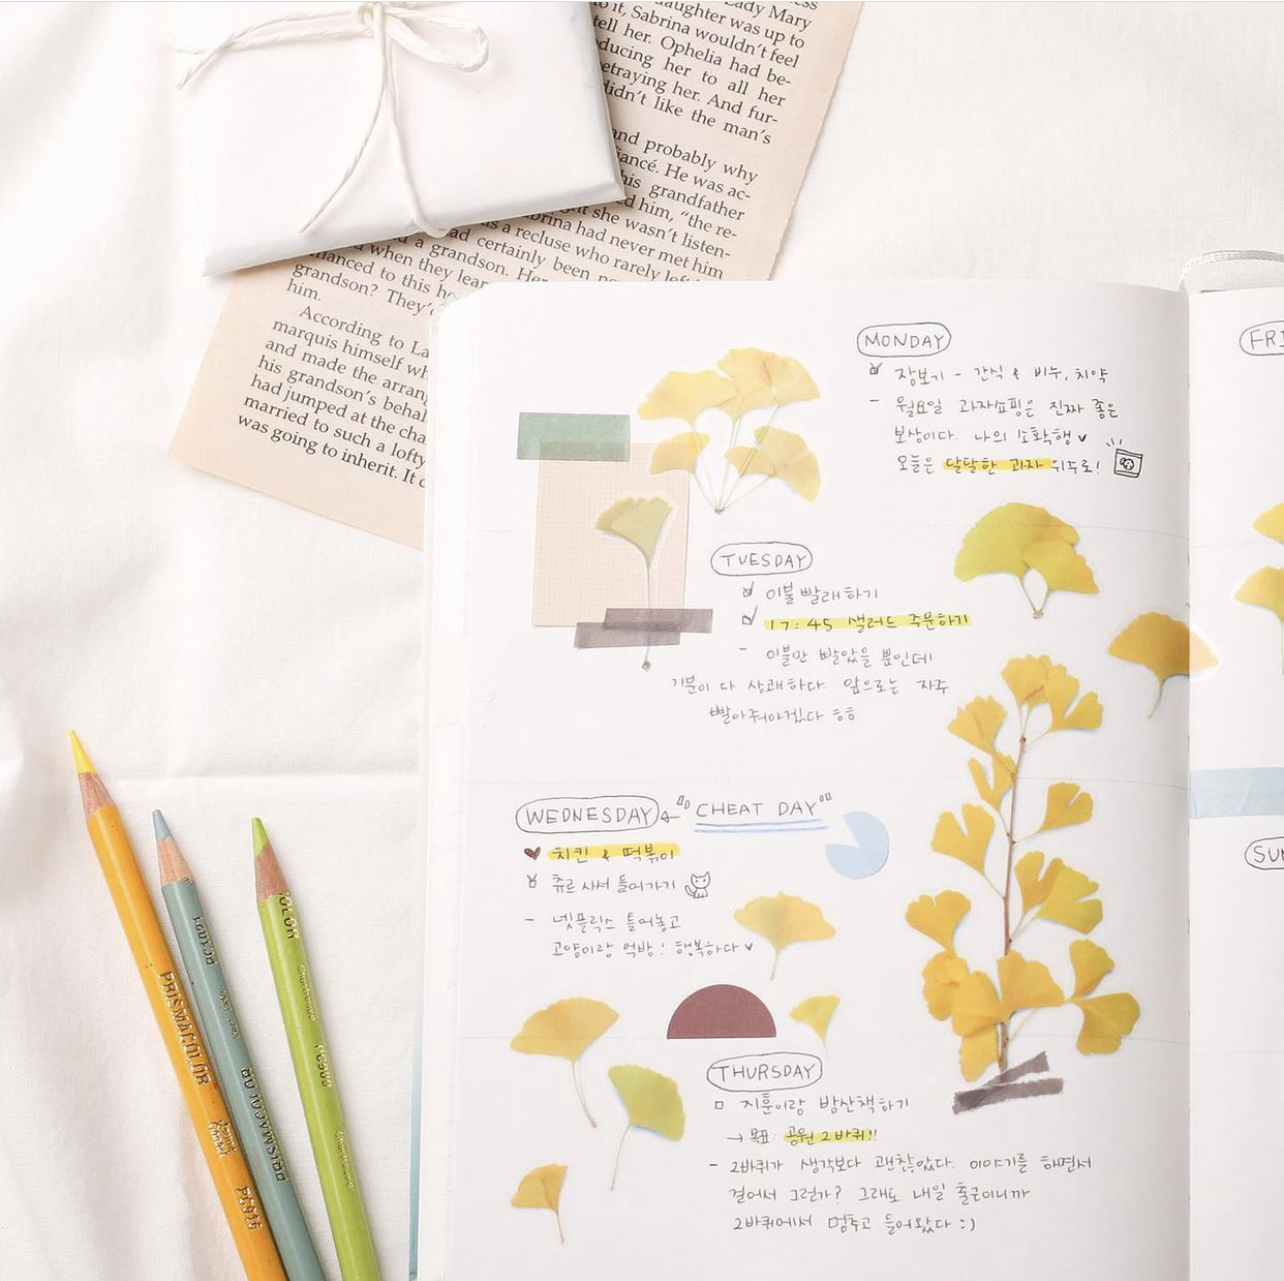 Lady Mary
daughter was up to
to it, Sabrina wouldn't feel
tell her. Ophelia had be-
her to all her
her. And fur-
didn't like the man's
and probably why
He was ac-
his grandfather
him, "the re-
she wasn't listen-
had never met him
a recluse who rarely
certainly been
a grandson. Her
when they
to this
grandson? They'd
him.
According to La
marquis himself
and made the
his grandson's
had jumped at the
married to such a lofty
was going to inherit. It
MONDAY
장보기 - 간식 & 비누, 치약
- 월요일 과자쇼핑은 진짜 좋은
보상이다. 나의 소확행
오늘은 달달한 과자 위주로!
TUESDAY
이불 빨래하기
17:45 샐러드 주문하기
- 이불만 빨았을 뿐인데
기분이 다 상쾌하다. 앞으로는 자주
빨아줘야겠다 ㅎㅎ
WEDNESDAY ← "CHEAT DAY"
치킨 & 떡볶이
츄르 사서 들어가기
- 넷플릭스 틀어놓고
고양이랑 먹방! 행복하다
THURSDAY
지훈이랑 밤산책하기
→ 목표: 공원 2바퀴!!
- 2바퀴가 생각보다 괜찮았다. 이야기를 하면서
걸어서 그런가? 그래도 내일 출근이니까
2바퀴에서 멈추고 들어왔다 :)
FRI
SUN
PRISMACOLOR
PC916
PRISMACOLOR
PC1021
COLOR
PC989